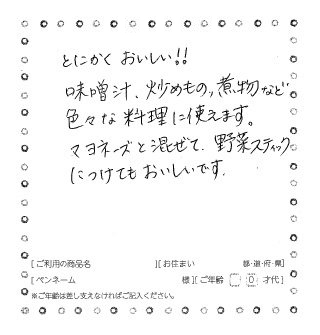 とにかく おいしい!!
味噌汁、炒めもの、煮物など
色々な料理に使えます。
マヨネーズと混ぜて、野菜スティック
につけてもおいしいです。
[ご利用の商品名 ][お住まい 都・道・府・県]
[ペンネーム 様][ご年齢 0 才代]
※ご年齢は差し支えなければご記入ください。